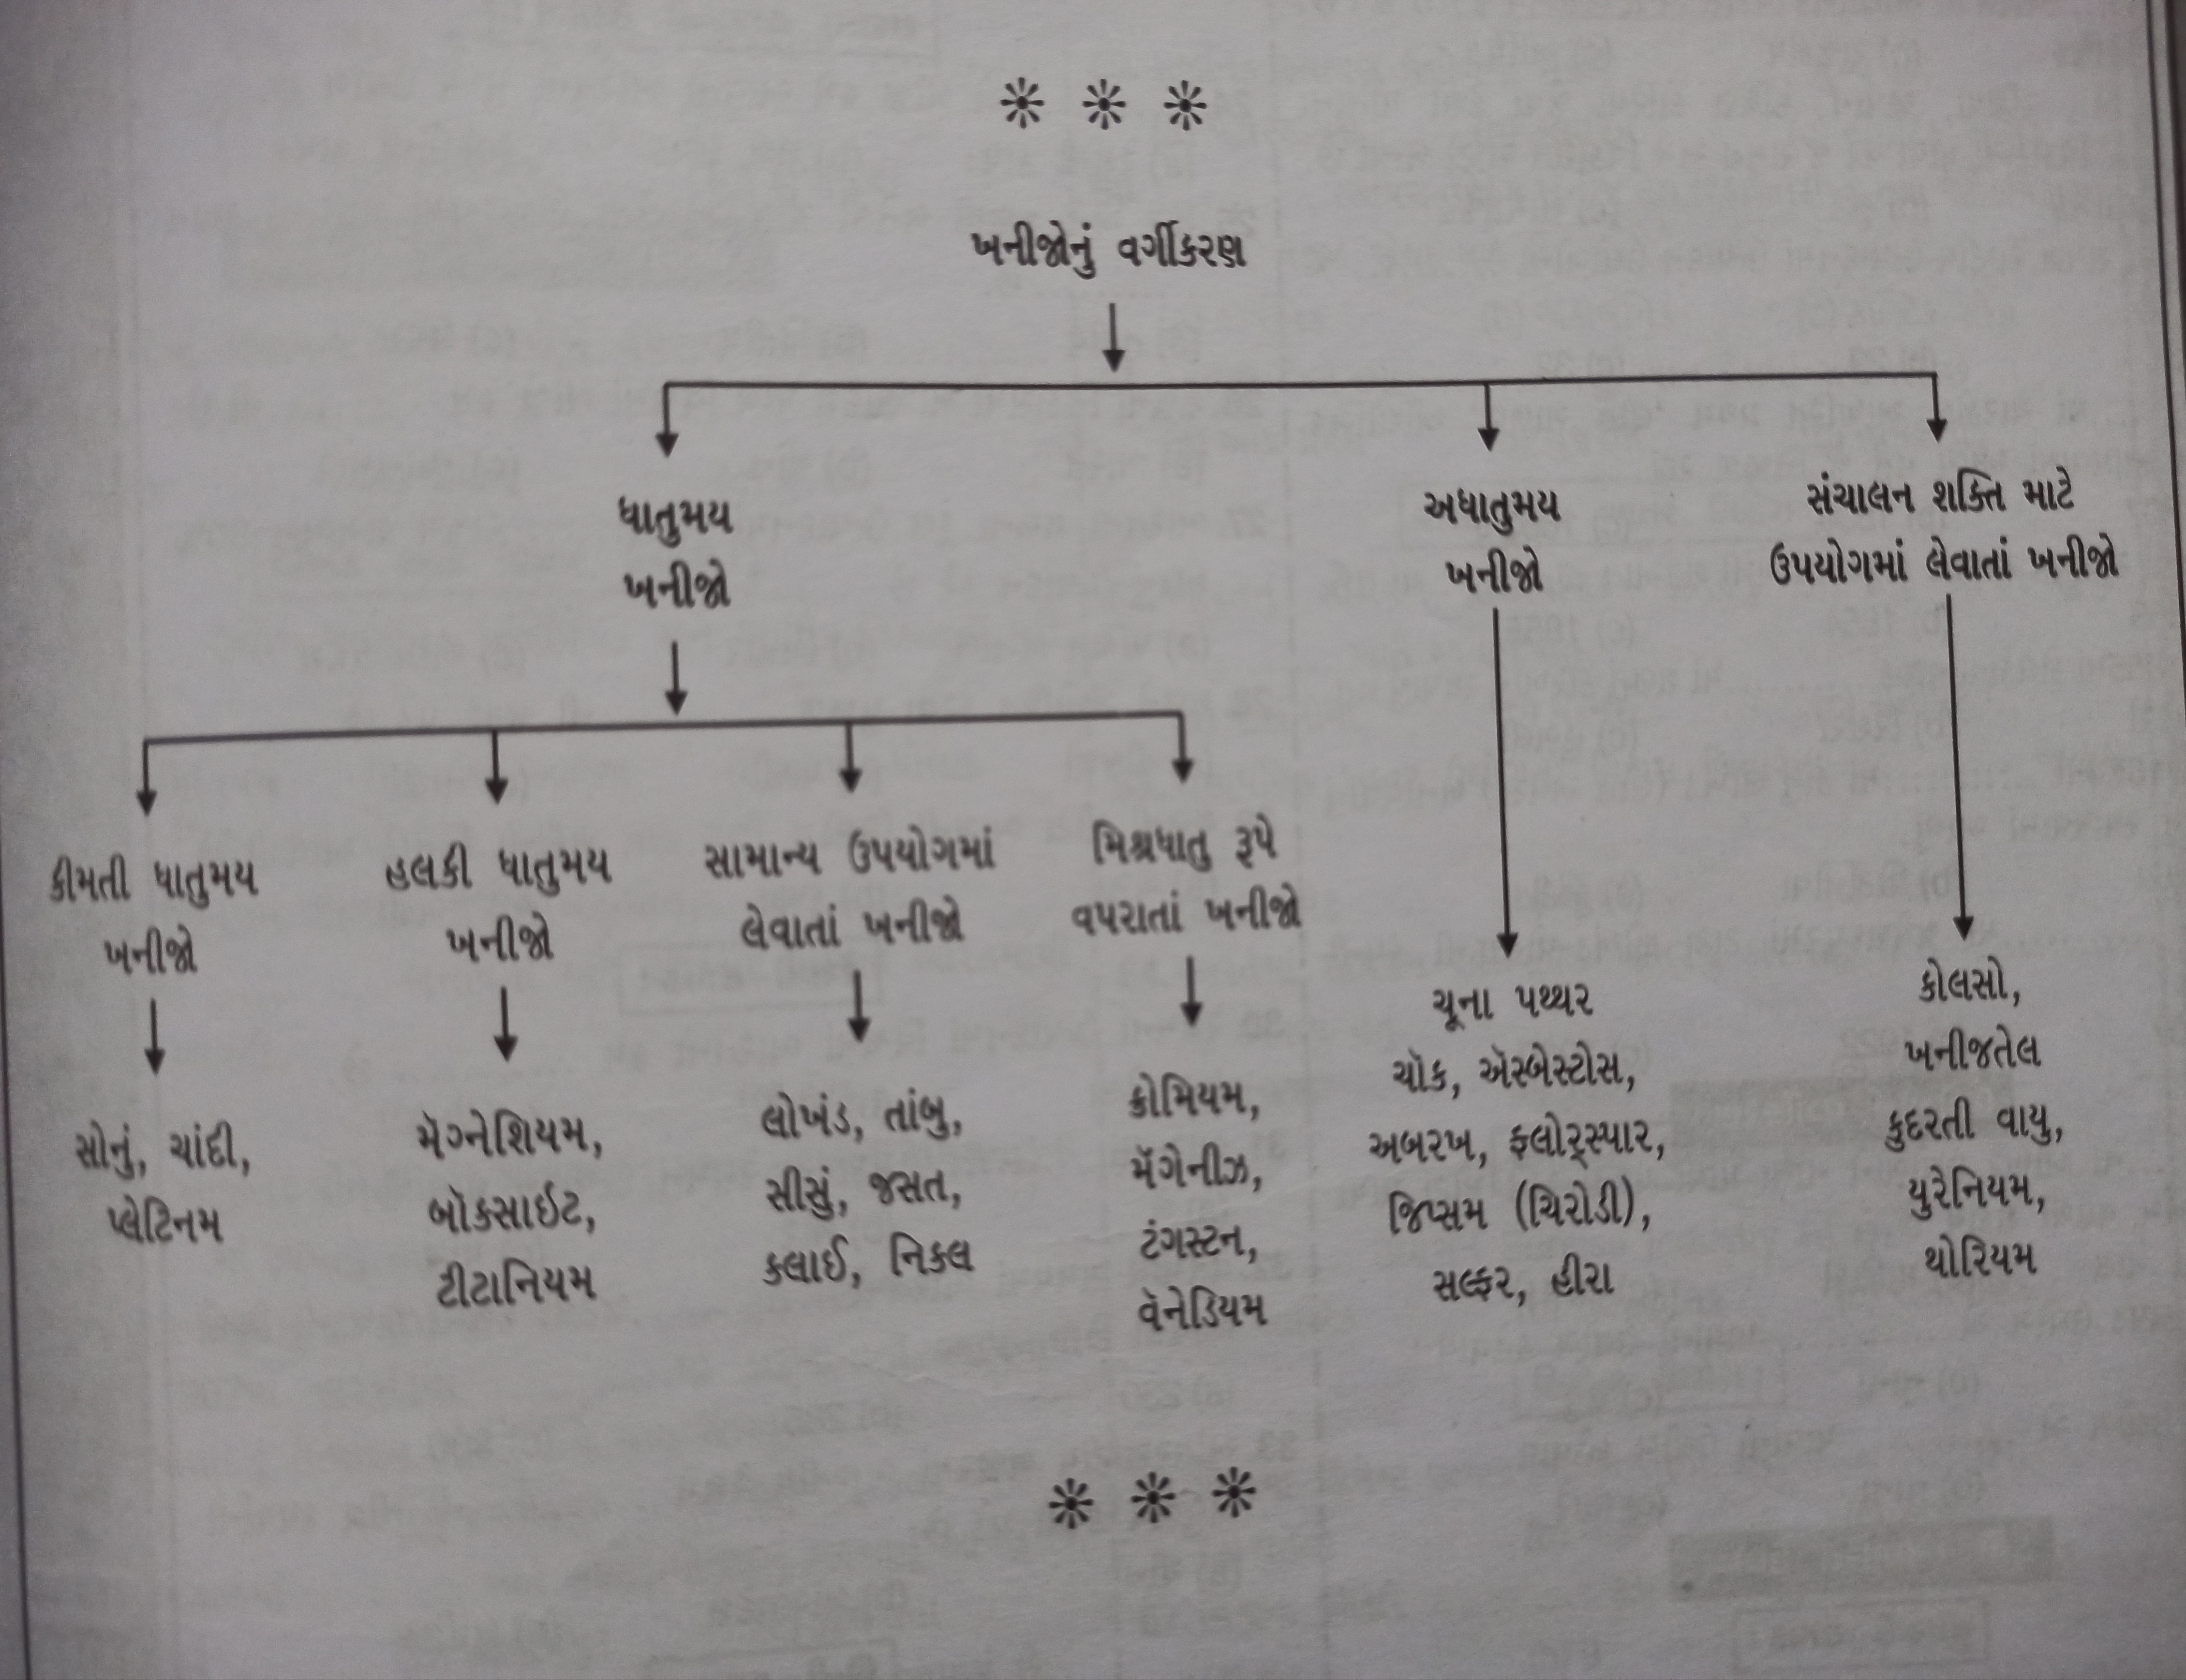 ખનીજોનું વર્ગીકરણ
ધાતુમય
ખનીજો
અધાતુમય
ખનીજો
સંચાલન શક્તિ માટે
ઉપયોગમાં લેવાતાં ખનીજો
કીમતી ધાતુમય
ખનીજો
હલકી ધાતુમય
ખનીજો
સામાન્ય ઉપયોગમાં
લેવાતાં ખનીજો
મિશ્રધાતુ રૂપે
વપરાતાં ખનીજો
સોનું, ચાંદી,
પ્લેટિનમ
મૅગ્નેશિયમ,
બૉક્સાઈટ,
ટીટાનિયમ
લોખંડ, તાંબુ,
સીસું, જસત,
કલાઈ, નિકલ
ક્રોમિયમ,
મૅંગેનીઝ,
ટંગસ્ટન,
વૅનેડિયમ
ચૂના પથ્થર
ચૉક, ઍસ્બેસ્ટોસ,
અબરખ, ફ્લોર્સ્પાર,
જિપ્સમ (ચિરોડી),
સલ્ફર, હીરા
કોલસો,
ખનીજતેલ
કુદરતી વાયુ,
યુરેનિયમ,
થોરિયમ